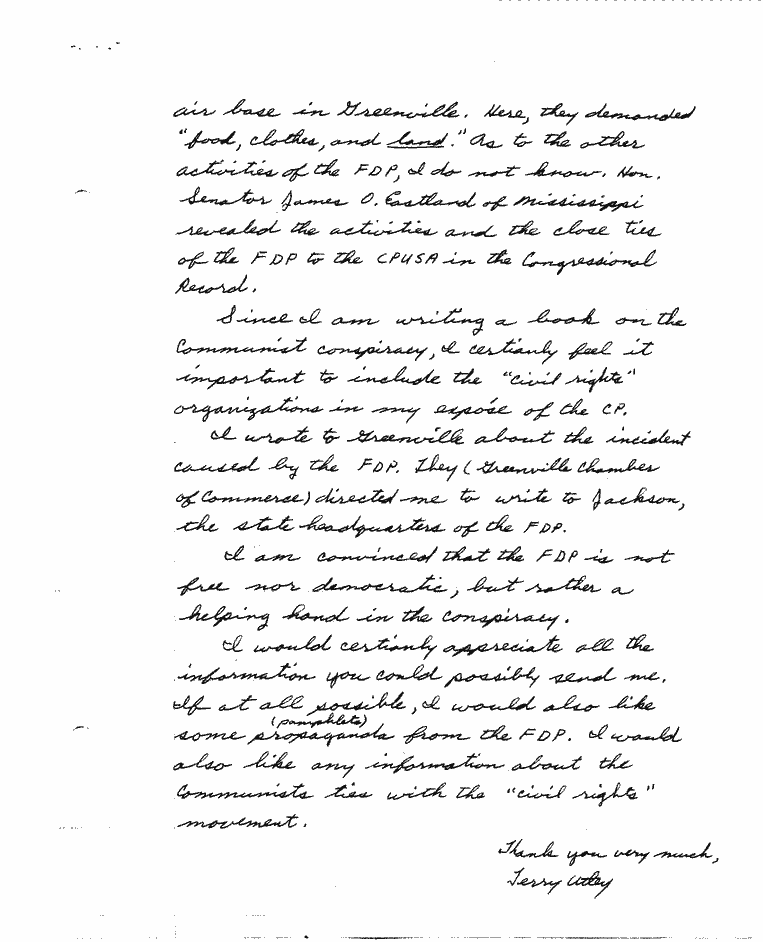 air base in Greenville. Here, they demanded
"food, clothes, and land." As to the other
activities of the FDP, I do not know. Hon.
Senator James O. Eastland of Mississippi
revealed the activities and the close ties
of the FDP to the CPUSA in the Congressional
Record.
Since I am writing a book on the
Communist conspiracy, I certianly feel it
important to include the "civil rights"
organizations in my exposé of the CP.
I wrote to Greenville about the incident
caused by the FDP. They (Greenville Chamber
of Commerce) directed me to write to Jackson,
the state headquarters of the FDP.
I am convinced that the FDP is not
free nor democratic, but rather a
helping hand in the conspiracy.
I would certianly appreciate all the
information you could possibly send me.
If at all possible, I would also like
(pamphlets)
some propaganda from the FDP. I would
also like any information about the
Communists ties with the "civil rights"
movement.
Thank you very much,
Terry Utley